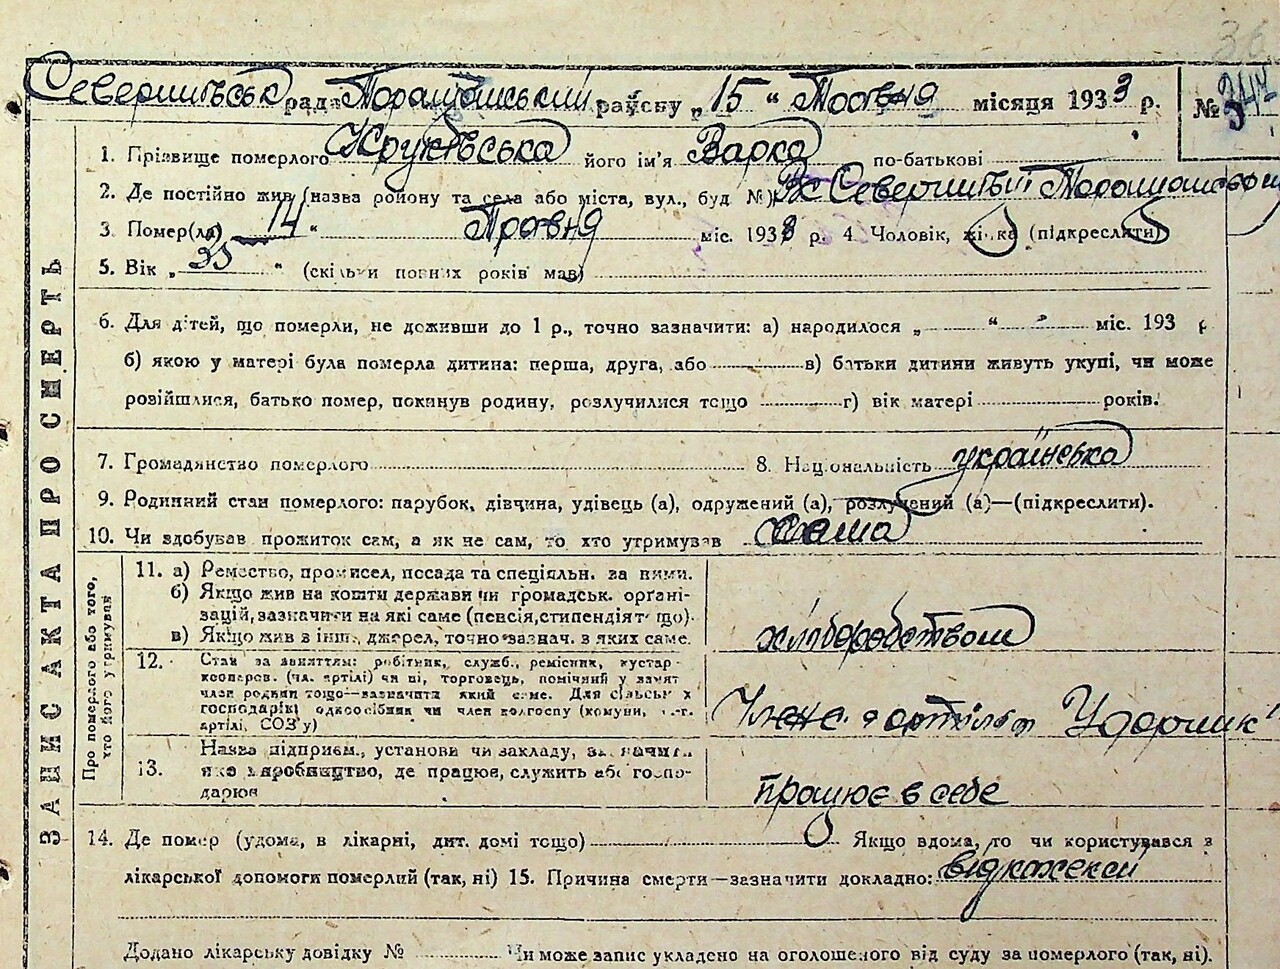 36
Северинівська рада Тараща́нський району „15 “ Травня місяця 1933 р. №
1. Прізвище померлого Круківська його ім'я Варка по-батькові
2. Де постійно жив (назва району та села або міста, вул., буд №) Северинів
3. Помер(ла) 14 “ Травня міс. 193 р. 4. Чоловік, жінка (підкреслити)
5. Вік „ 35 “ (скільки повних років мав)
6. Для дітей, що померли, не доживши до 1 р., точно зазначити: а) народилося „ “ міс. 193 р
б) якою у матері була померла дитина: перша, друга, або в) батьки дитини живуть укупі, чи може
розійшлися, батько помер, покинув родину, розлучилися тощо г) вік матері років.
7. Громадянство померлого 8. Національність українська
9. Родинний стан померлого: парубок, дівчина, удівець (а), одружений (а), розлучений (а)—(підкреслити).
10. Чи здобував прожиток сам, а як не сам, то хто утримував Сама
ЗАПИС АКТА ПРО СМЕРТЬ
Про померлого або того, хто його утримував
11. а) Ремество, промисел, посада та спеціяльн. за ними.
б) Якщо жив на кошти держави чи громадськ. органі-
зацій, зазначити на які саме (пенсія, стипендіят що).
в) Якщо жив з інш. джерел, точно зазнач. з яких саме.
хліборобством
12. Стан за заняттям: робітник, служб., ремісник, кустар
кооперов. (чл. артілі) чи ні, торговець, помічний у занят
член родини тощо—зазначити який саме. Для сільськ х
господарів: одноосібник чи член колгоспу (комуни,
артілі, СОЗ'у)
Член артілі Ударник"
13. Назва підприєм., установи чи закладу, зазначити
яке виробництво, де працює, служить або госпо-
дарює
працює в себе
14. Де помер (удома, в лікарні, дит. домі тощо) Якщо вдома, то чи користувався з
лікарської допомоги померлий (так, ні) 15. Причина смерти—зазначити докладно:
Додано лікарську довідку № Чи може запис укладено на оголошеного від суду за померлого (так, ні).